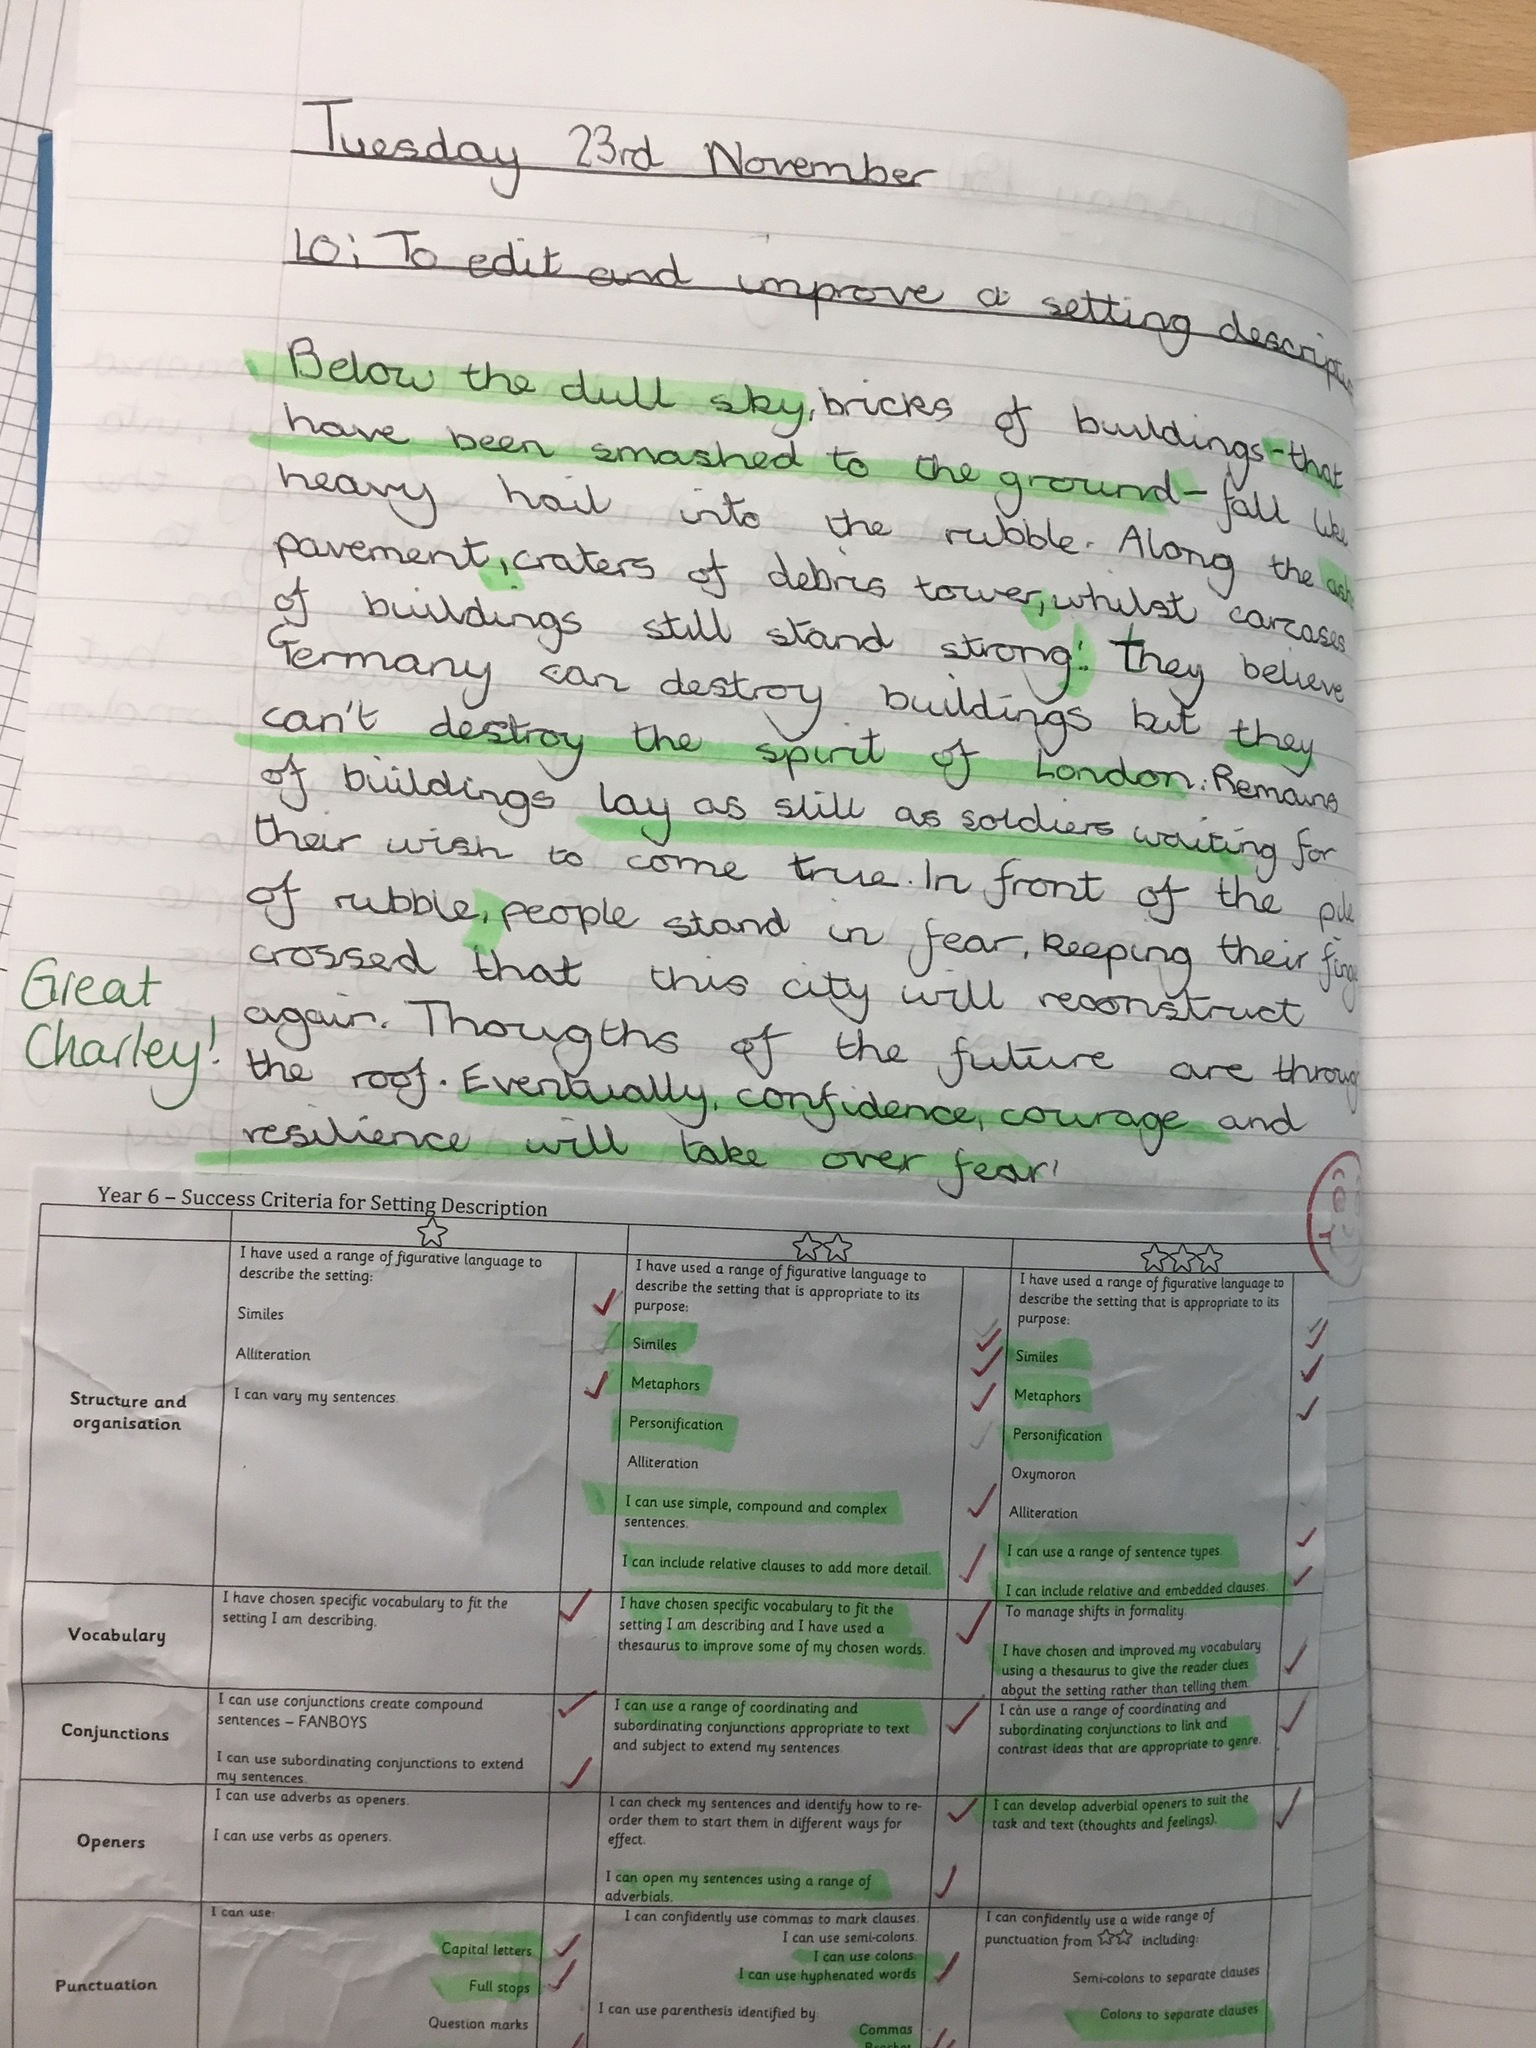 Tuesday 23rd November
LO: To edit and improve a setting
Below the dull sky, bricks of buildings - that
have been smashed to the ground - fall like
heavy hail into the rubble. Along the
pavement, craters of debris tower, whilst carcases
of buildings still stand strong: they believe
Germany can destroy buildings but they
can't destroy the spirit of London. Remains
of buildings lay as still as soldiers waiting for
their wish to come true. In front of the
of rubble, people stand in fear, keeping their
crossed that this city will reconstruct
again. Thougths of the future are
the roof. Eventually, confidence, courage and
resilience will take over fear!
Great
Charley!
Year 6 – Success Criteria for Setting Description
Structure and
organisation
I have used a range of figurative language to
describe the setting:
Similes
Alliteration
I can vary my sentences.
I have used a range of figurative language to
describe the setting that is appropriate to its
purpose:
Similes
Metaphors
Personification
Alliteration
I can use simple, compound and complex
sentences.
I can include relative clauses to add more detail.
I have used a range of figurative language to
describe the setting that is appropriate to its
purpose:
Similes
Metaphors
Personification
Oxymoron
Alliteration
I can use a range of sentence types.
I can include relative and embedded clauses.
Vocabulary
I have chosen specific vocabulary to fit the
setting I am describing.
I have chosen specific vocabulary to fit the
setting I am describing and I have used a
thesaurus to improve some of my chosen words.
To manage shifts in formality.
I have chosen and improved my vocabulary
using a thesaurus to give the reader clues
about the setting rather than telling them.
Conjunctions
I can use conjunctions create compound
sentences – FANBOYS
I can use subordinating conjunctions to extend
my sentences.
I can use a range of coordinating and
subordinating conjunctions appropriate to text
and subject to extend my sentences
I can use a range of coordinating and
subordinating conjunctions to link and
contrast ideas that are appropriate to genre.
Openers
I can use adverbs as openers.
I can use verbs as openers.
I can check my sentences and identify how to re-
order them to start them in different ways for
effect.
I can open my sentences using a range of
adverbials.
I can develop adverbial openers to suit the
task and text (thoughts and feelings).
Punctuation
I can use:
Capital letters
Full stops
Question marks
I can confidently use commas to mark clauses.
I can use semi-colons.
I can use colons.
I can use hyphenated words
I can use parenthesis identified by:
Commas
I can confidently use a wide range of
punctuation from including:
Semi-colons to separate clauses
Colons to separate clauses